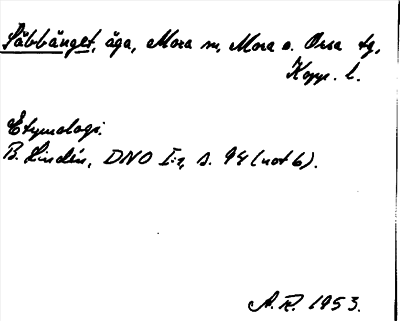 Säbbänget, äga, Mora sn, Mora o. Orsa tg,
Kopp. l.
Etymologi.
B. Lindén, DNO I:2, s. 94 (not 6).
A. R. 1953.